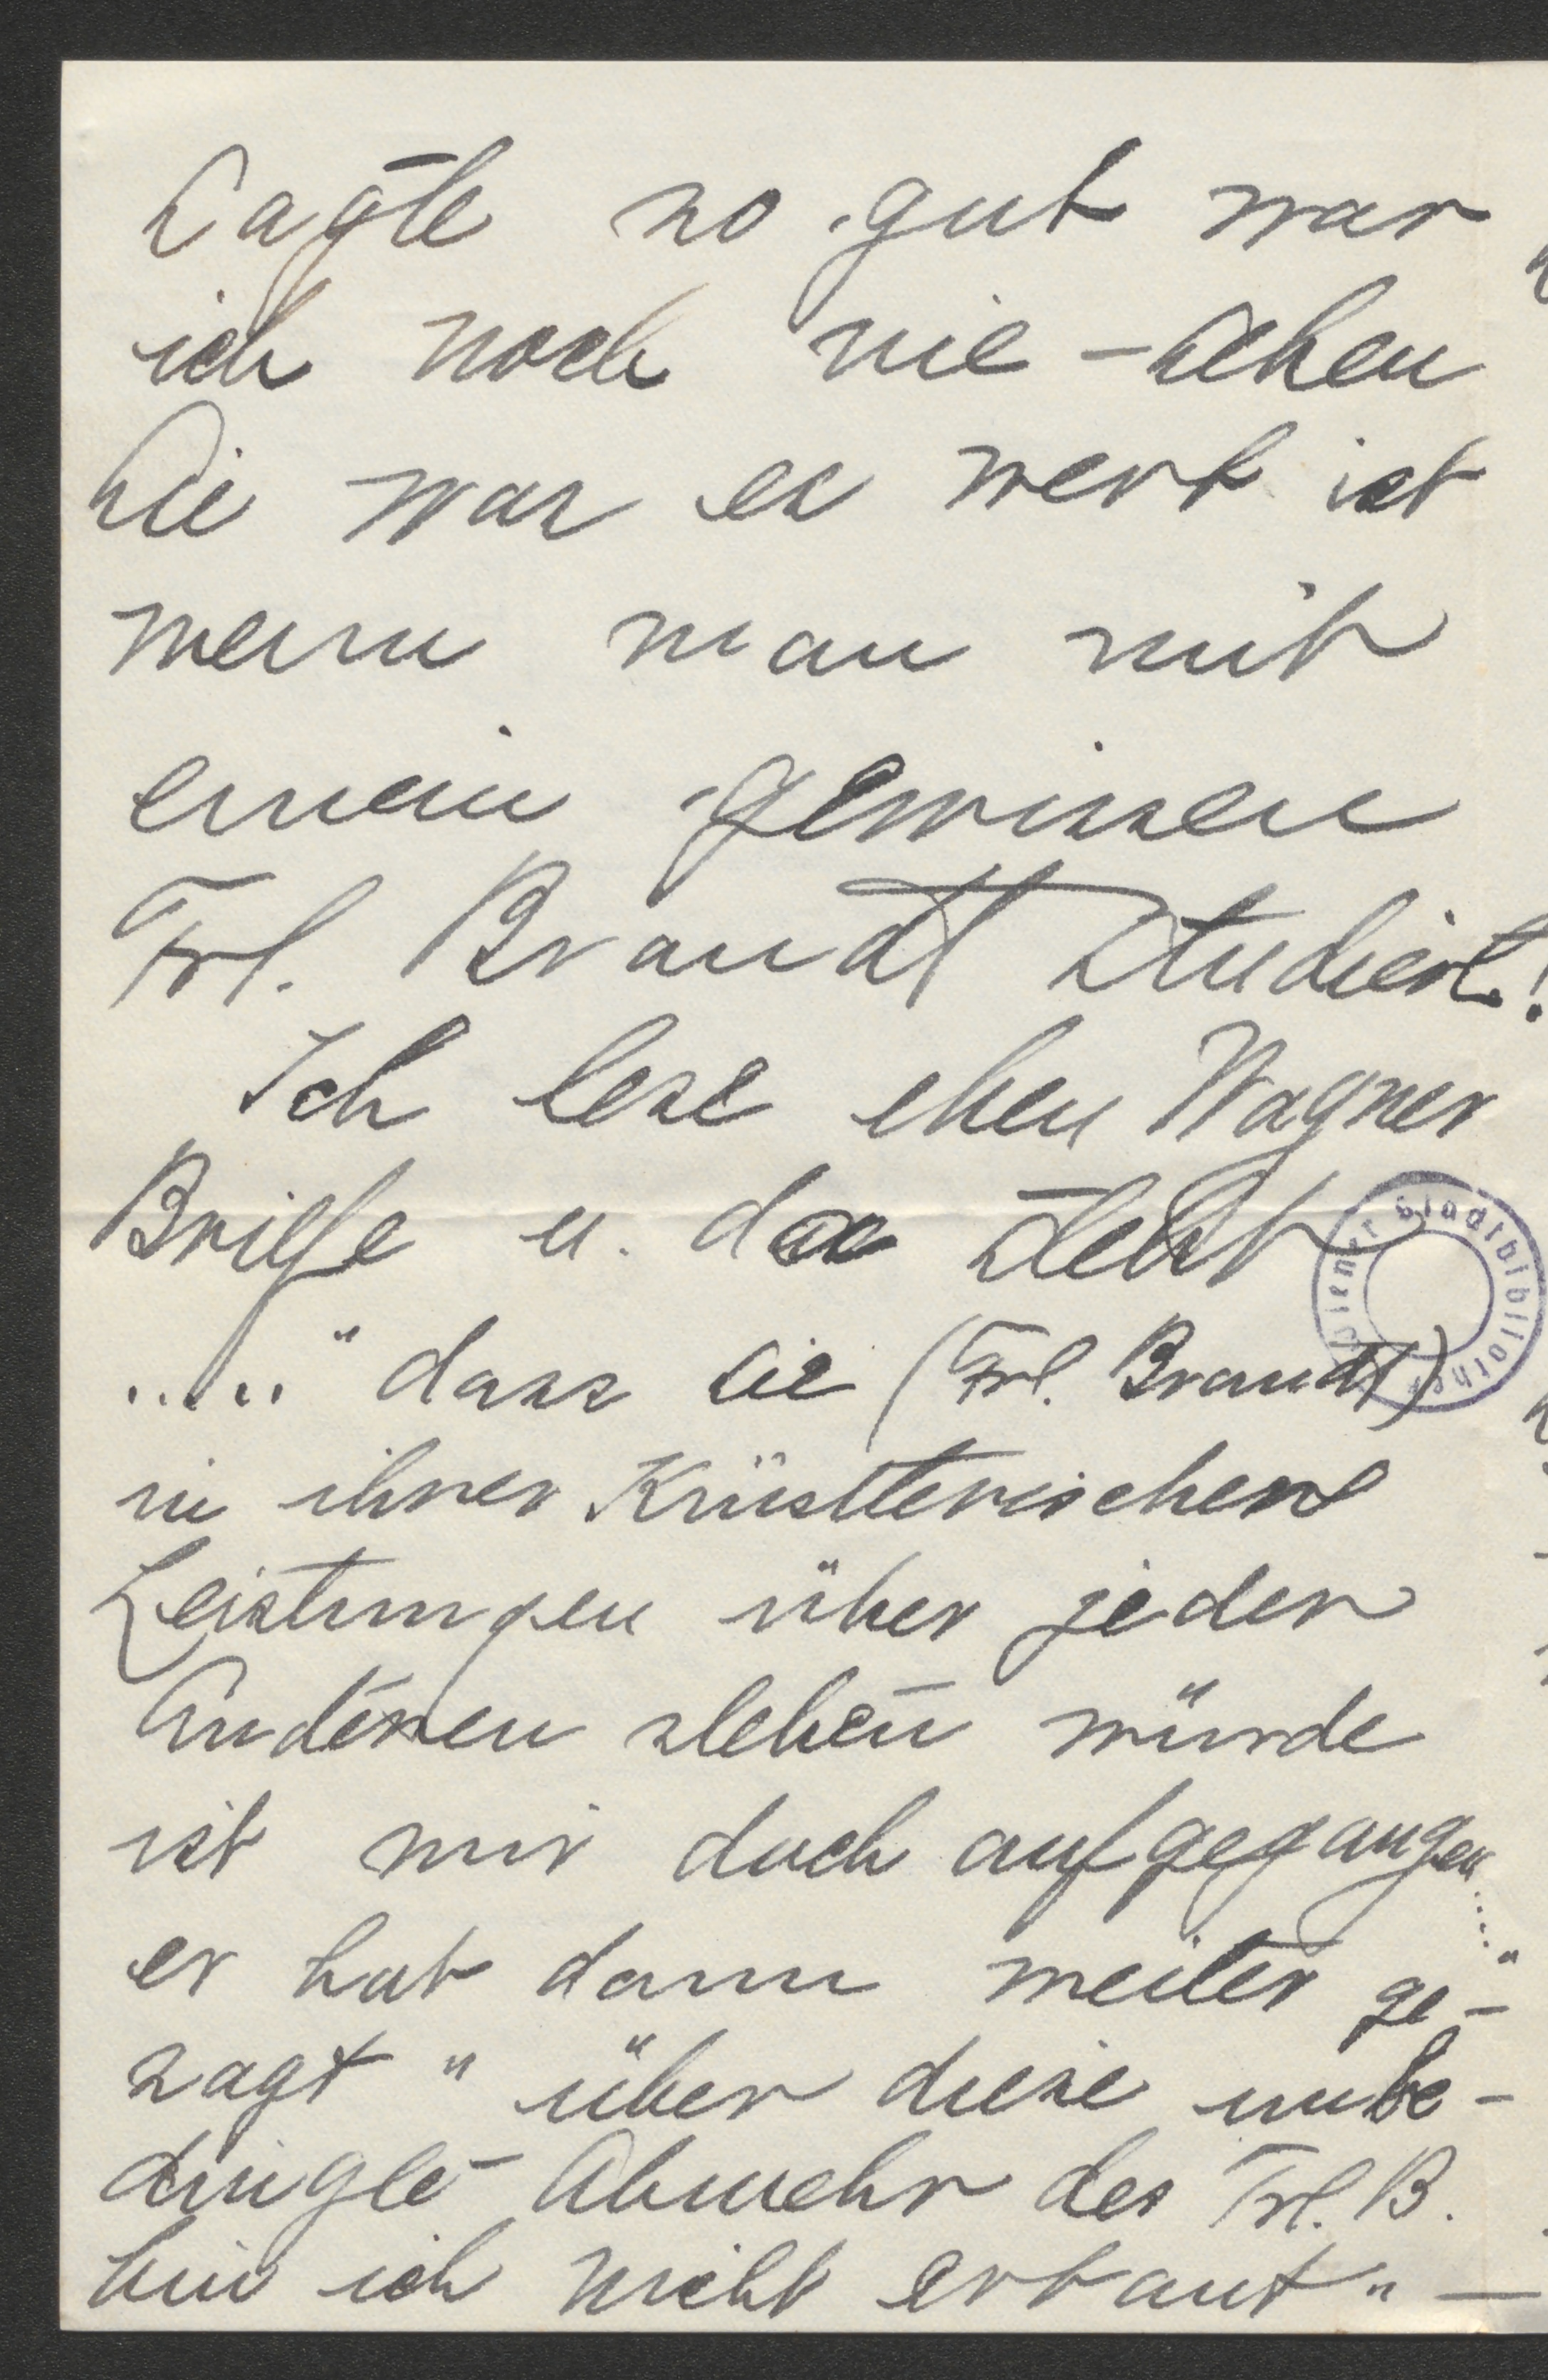 sagte so gut war
ich noch nie - sehen
Sie was es wert ist
wenn man mit
einem gewissen
Frl. Brandt studiert!
Ich lese eben Wagner
Briefe u. da steht
....." dass sie (Frl. Brandt)
in ihren Künstlerischen
Leistungen über jeden
Anderen stehen würde
ist mir doch aufgegangen....."
er hat dann weiter ge-
sagt " über diese unbe-
dingte Abwehr des Frl. B.
bin ich nicht erbaut" -
Wiener Stadtbibliothek